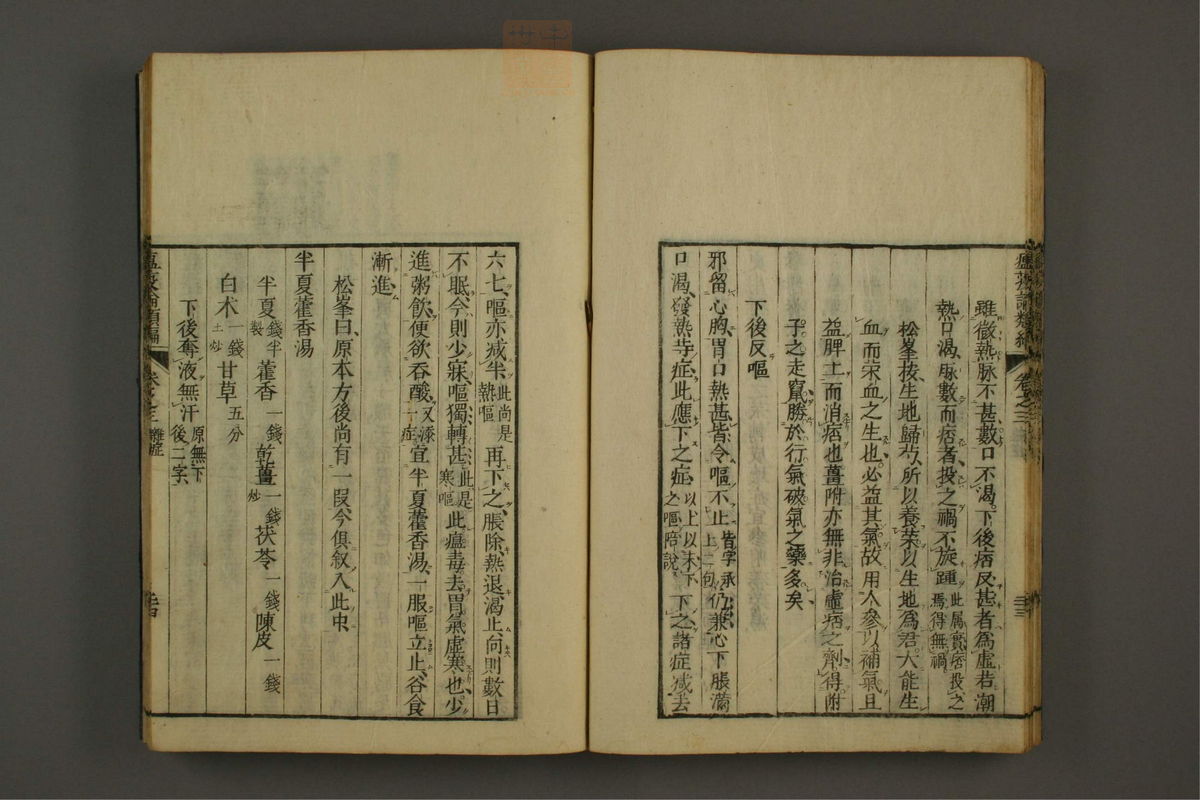 瘟疫論類編
卷之三
雖徹熱脉不甚數口不渴下後痞反甚者爲虛若潮
熱口渴脉數而痞者投之禍不旋踵此属實痞投之焉得無禍
松峯按生地歸芍所以養荣以生地爲君大能生
血而荣血之生也必益其氣故用人參以補氣且
益脾土而消痞也薑附亦無非治虛痞之劑得附
子之走竄勝於行氣破氣之藥多矣
下後反嘔
邪留心胸胃口熱甚皆令嘔不止皆字承上二句仍兼心下脹滿
口渴發熱等症此應下之症以上以未下之嘔陪說下之諸症减去
六七嘔亦减半此尚是熱嘔再下之脹除熱退渴止向則數日
不眠今則少寐嘔獨轉甚此是寒嘔此瘟毒去胃氣虛寒也少
進粥飲便欲吞酸又添一症宜半夏藿香湯一服嘔立止谷食
漸進
松峯曰原本方後尚有一段今俱叙入此中
半夏藿香湯
半夏錢半製藿香一錢乾薑一錢炒茯苓一錢陳皮一錢
白木一錢土炒甘草五分
下後奪液無汗原無下後二字
瘟疫論類編
卷之三
雜症